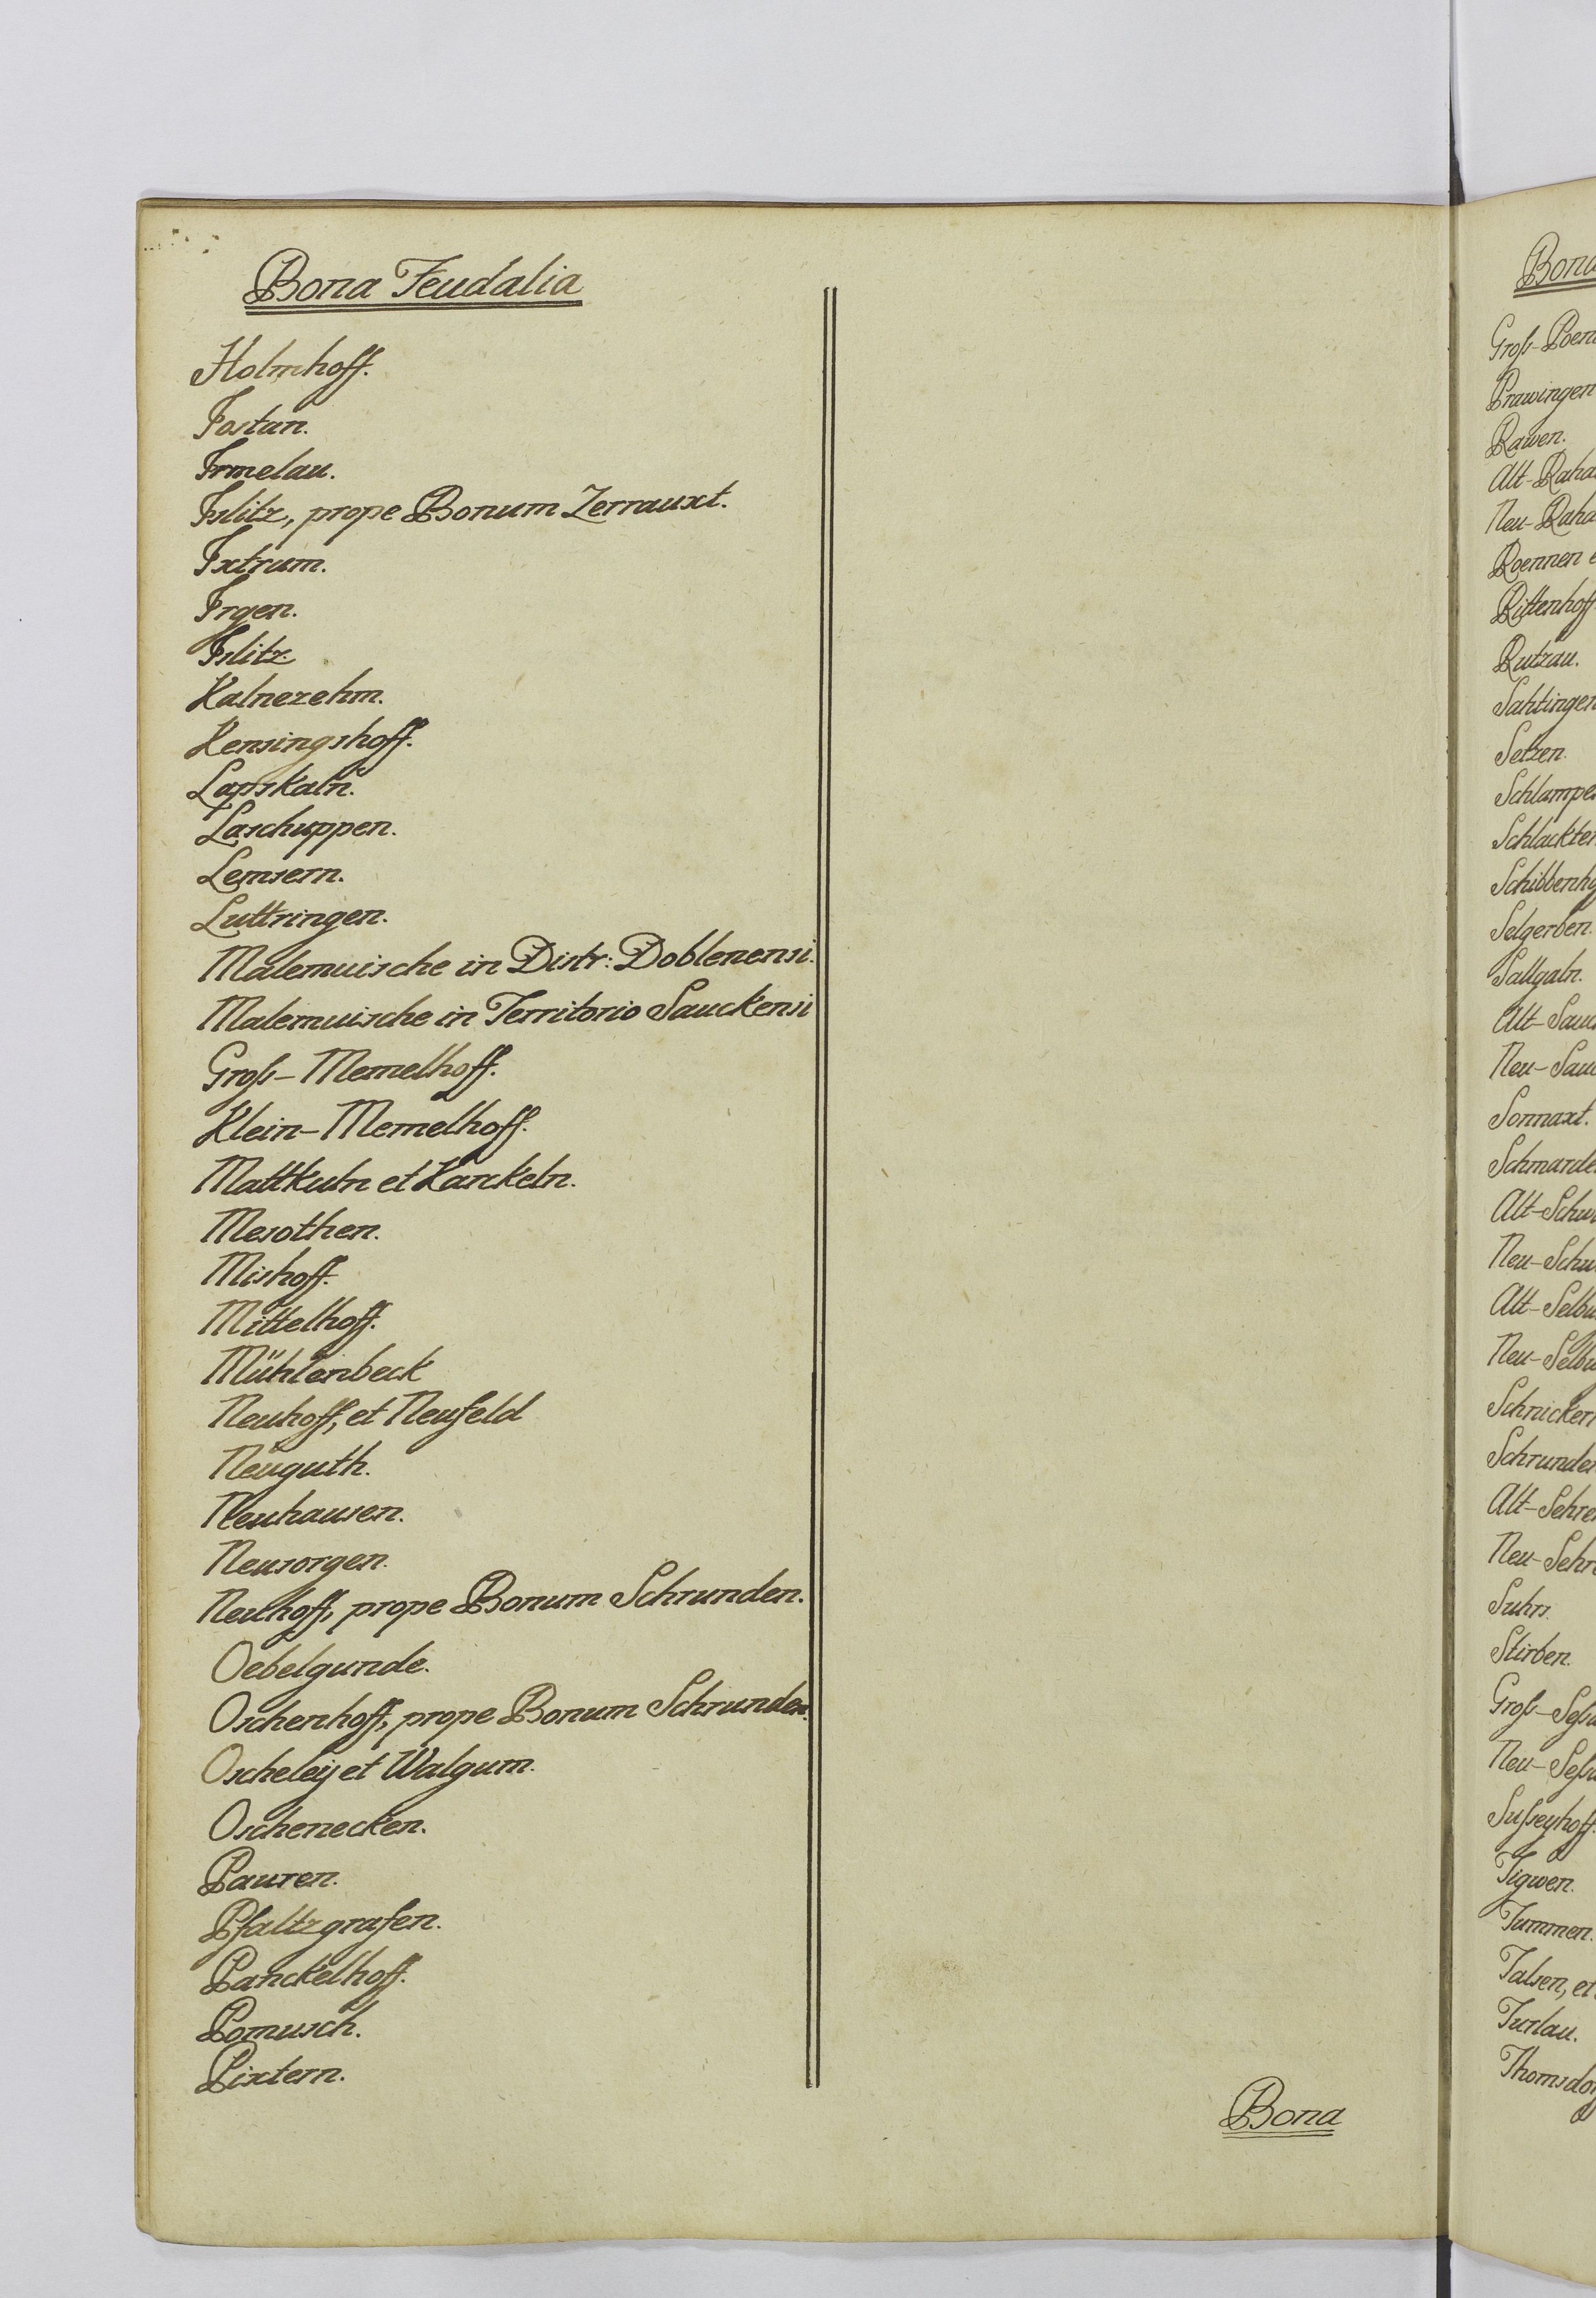 Bona Feudalia
Holmhoff.
Jostan.
Irmelau.
Islitz, prope Bonum Zerrauxt.
Ixtrum.
Irgen.
Islitz.
Kalnezehm.
Kensingshoff.
Lapskaln.
Laschuppen.
Lemsern.
Luttringen.
Malemuische in Distr: Doblenensi.
Malemuische in Territorio Sauckensi
Groß-Memelhoff.
Klein-Memelhoff.
Mattkuln et Karckeln.
Mesothen.
Mishoff.
Mittelhoff.
Mühlenbeck
Neuhoff, et Neufeld
Neuguth.
Neuhausen.
Neusorgen.
Neuhoff, prope Bonum Schrunden.
Oebelgunde.
Oschenhoff, prope Bonum Schrunden.
Oscheleij et Walgum.
Oschenecken.
Pauren.
Pfaltzgrafen.
Panckelhoff.
Pomusch.
Pixtern.
Bona
Bona
Groß-Poen
Prawingen
Rawen.
Alt-Raha
Neu-Raha
Roennen e
Rittenhoff
Rutzau.
Sahtingen
Setzen.
Schlampe
Schlackte
Schibbenh
Selgerben.
Sallgaln.
Alt-Sau
Neu-Sau
Sonnaxt.
Schmarde
Alt-Schw
Neu-Schw
Alt-Selbu
Neu-Selbu
Schnicker
Schrunde
Alt-Sehre
Neu-Sehr
Suhrs.
Stirben.
Groß-Seß
Neu-Seß
Sußeyhoff.
Tigwen.
Tummen.
Talsen, et
Turlau.
Thomsdo